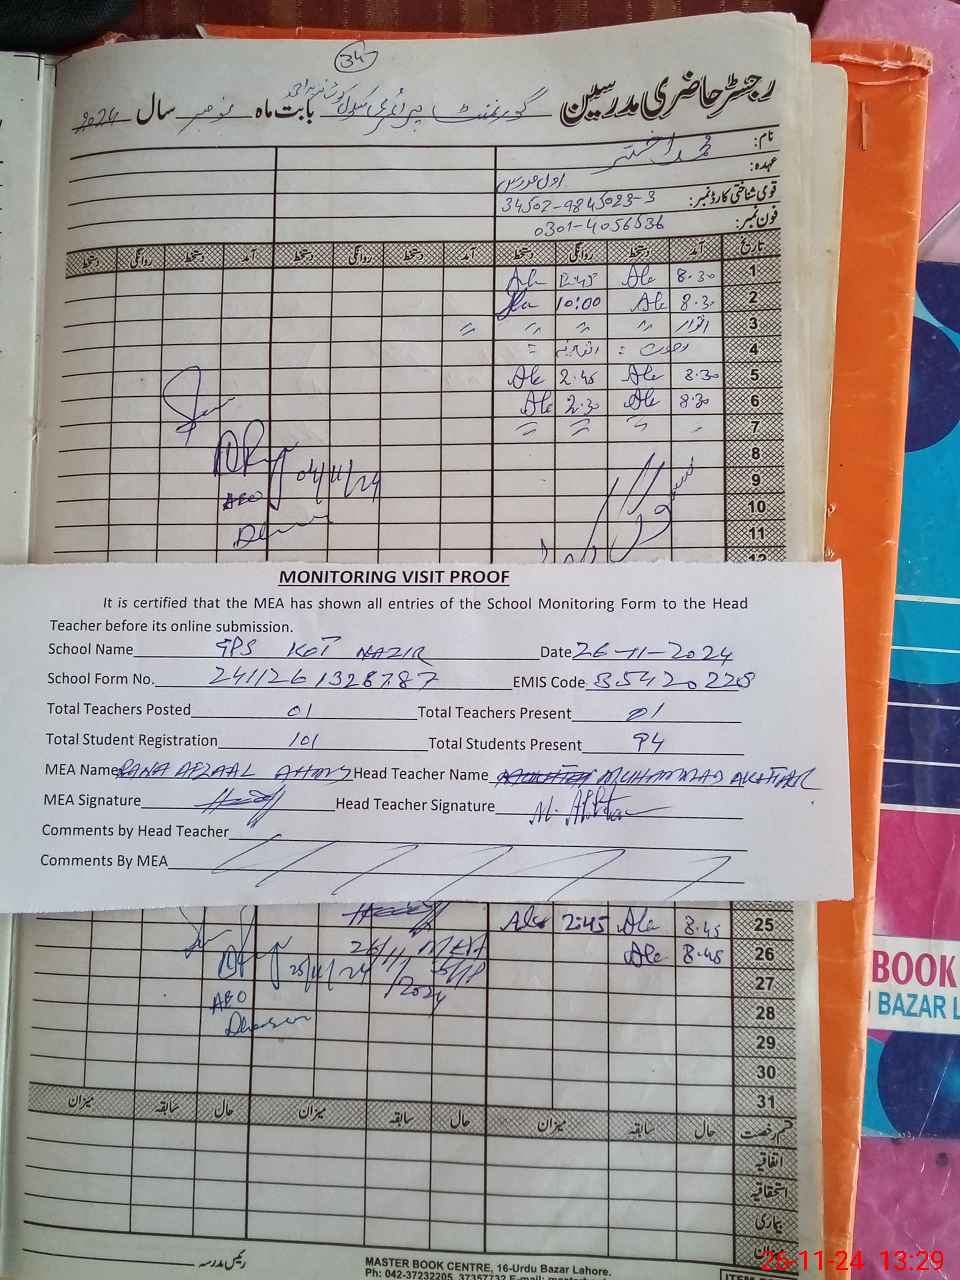 34
رجسٹر حاضری مدرسین گورنمنٹ پرائمری سکول بابت ماہ نومبر سال 2024
نام: محمد اختر
عہدہ: اول مدرس
قومی شناختی کارڈ نمبر: 34502-9845023-3
فون نمبر: 0301-4056536
تاریخ آمد دستخط روانگی دستخط آمد دستخط روانگی دستخط آمد دستخط روانگی دستخط
1 8.30 2:45
2 8.30 10:00
3 اتوار
4
5 8.30 2.45
6 8.30 2.30
7
8
9 04/11/24
10 AEO
11
12
MONITORING VISIT PROOF
It is certified that the MEA has shown all entries of the School Monitoring Form to the Head
Teacher before its online submission.
School Name GPS KOT NAZIR Date 26-11-2024
School Form No. 2411261328787 EMIS Code 35420228
Total Teachers Posted 01 Total Teachers Present 01
Total Student Registration 101 Total Students Present 94
MEA Name RANA AFZAAL Head Teacher Name MUHAMMAD AKHTAR
MEA Signature Head Teacher Signature M. Akhtar
Comments by Head Teacher
Comments By MEA
25 8.45 2:45
26 8.45 26/11 MEA
27 25/11/24 2024
28 AEO
29
30
31
قسم رخصت حال سابقہ میزان حال سابقہ میزان حال سابقہ میزان
اتفاقیہ
استحقاقیہ
بیماری
رئیس مدرسہ
MASTER BOOK CENTRE, 16-Urdu Bazar Lahore.
Ph: 042-37232205, 37357732 E-mail:
BOOK
BAZAR L
26-11-24 13:29